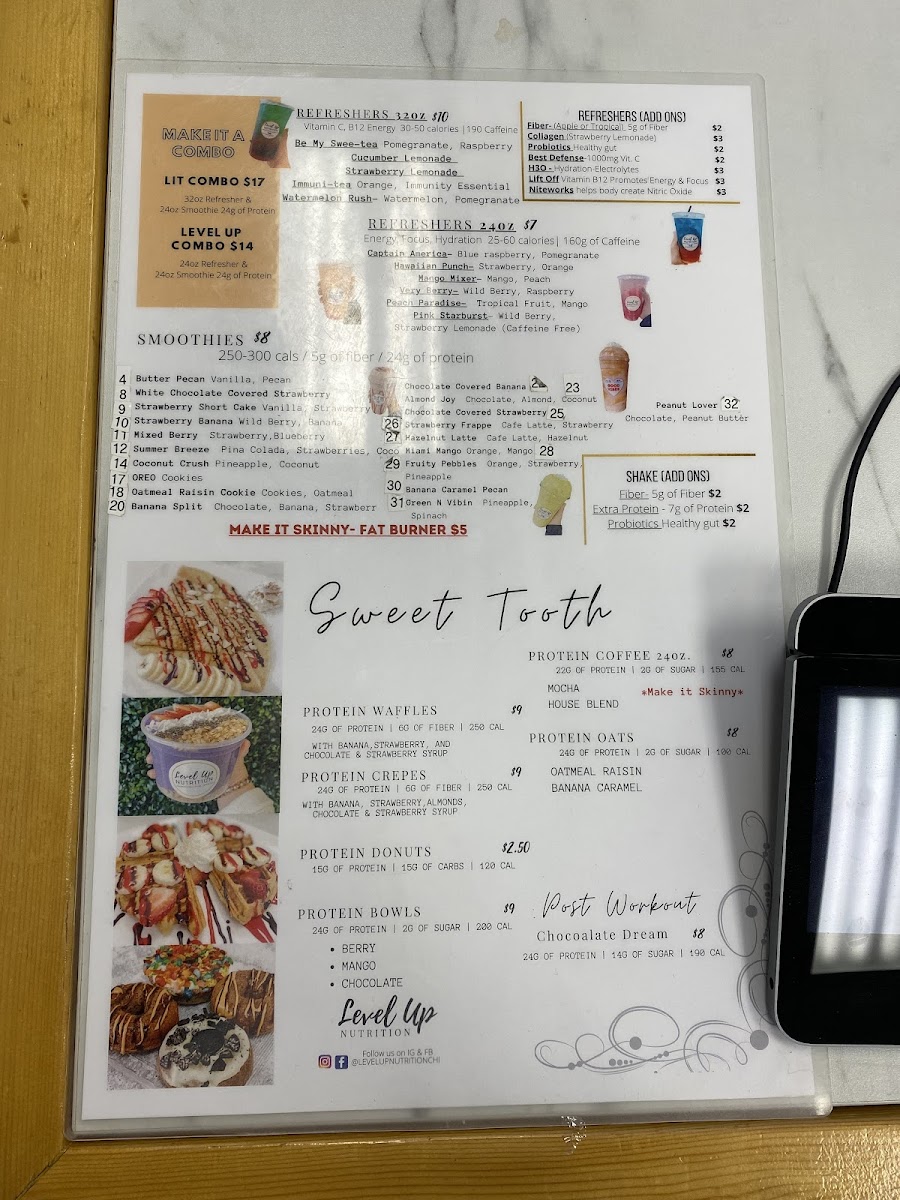 MAKE IT A
COMBO
LIT COMBO $17
32oz Refresher &
24oz Smoothie 24g of Protein
LEVEL UP
COMBO $14
24oz Refresher &
24oz Smoothie 24g of Protein
REFRESHERS 32OZ $10
Vitamin C, B12 Energy 30-50 calories |190 Caffeine
Be My Swee-tea Pomegranate, Raspberry
Cucumber Lemonade
Strawberry Lemonade
Immuni-tea Orange, Immunity Essential
Watermelon Rush- Watermelon, Pomegranate
REFRESHERS (ADD ONS)
Fiber- (Apple or Tropical) 5g of Fiber $2
Collagen (Strawberry Lemonade) $3
Probiotics Healthy gut $2
Best Defense-1000mg Vit. C $2
H3O - Hydration-Electrolytes $3
Lift Off Vitamin B12 Promotes Energy & Focus $3
Niteworks helps body create Nitric Oxide $3
REFRESHERS 24OZ $7
Energy, Focus, Hydration 25-60 calories| 160g of Caffeine
Captain America- Blue raspberry, Pomegranate
Hawaiian Punch- Strawberry, Orange
Mango Mixer- Mango, Peach
Very Berry- Wild Berry, Raspberry
Peach Paradise- Tropical Fruit, Mango
Pink Starburst- Wild Berry,
Strawberry Lemonade (Caffeine Free)
SMOOTHIES $8
250-300 cals / 5g of fiber / 24g of protein
4 Butter Pecan Vanilla, Pecan
8 White Chocolate Covered Strawberry
9 Strawberry Short Cake Vanilla, Strawberry
10 Strawberry Banana Wild Berry, Banana
11 Mixed Berry Strawberry,Blueberry
12 Summer Breeze Pina Colada, Strawberries, Coco
14 Coconut Crush Pineapple, Coconut
17 OREO Cookies
18 Oatmeal Raisin Cookie Cookies, Oatmeal
20 Banana Split Chocolate, Banana, Strawberr
Chocolate Covered Banana 2 23
Almond Joy Chocolate, Almond, Coconut
Chocolate Covered Strawberry 25
26 Strawberry Frappe Cafe Latte, Strawberry
27 Hazelnut Latte Cafe Latte, Hazelnut
Miami Mango Orange, Mango 28
29 Fruity Pebbles Orange, Strawberry,
Pineapple
30 Banana Caramel Pecan
31 Green N Vibin Pineapple,
Spinach
Peanut Lover 32
Chocolate, Peanut Butter
SHAKE (ADD ONS)
Fiber- 5g of Fiber $2
Extra Protein - 7g of Protein $2
Probiotics Healthy gut $2
MAKE IT SKINNY- FAT BURNER $5
Sweet Tooth
PROTEIN WAFFLES $9
24G OF PROTEIN | 6G OF FIBER | 250 CAL
WITH BANANA,STRAWBERRY, AND
CHOCOLATE & STRAWBERRY SYRUP
PROTEIN CREPES $9
24G OF PROTEIN | 6G OF FIBER | 250 CAL
WITH BANANA, STRAWBERRY,ALMONDS,
CHOCOLATE & STRAWBERRY SYRUP
PROTEIN DONUTS $2.50
15G OF PROTEIN | 15G OF CARBS | 120 CAL
PROTEIN BOWLS $9
24G OF PROTEIN | 2G OF SUGAR | 200 CAL
• BERRY
• MANGO
• CHOCOLATE
PROTEIN COFFEE 24OZ. $8
22G OF PROTEIN | 2G OF SUGAR | 155 CAL
MOCHA
HOUSE BLEND
*Make it Skinny*
PROTEIN OATS $8
24G OF PROTEIN | 2G OF SUGAR | 100 CAL
OATMEAL RAISIN
BANANA CARAMEL
Post Workout
Chocoalate Dream $8
24G OF PROTEIN | 14G OF SUGAR | 190 CAL
Level Up
NUTRITION
Level Up
NUTRITION
Follow us on IG & FB
@LEVELUPNUTRITIONCHI